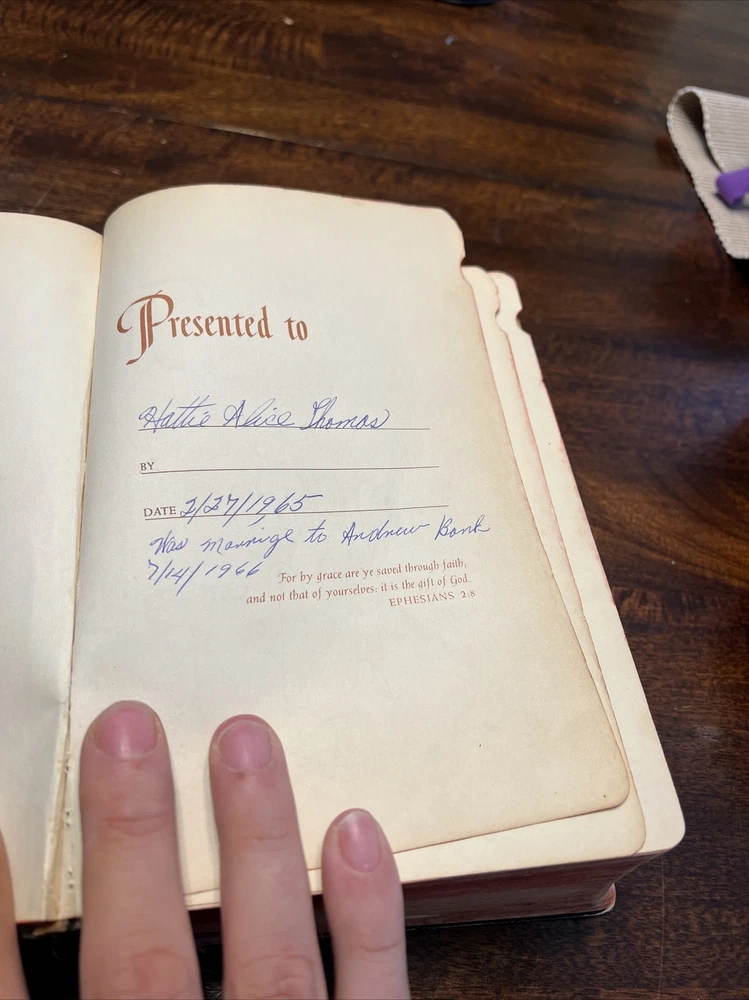 Presented to
Hattie Alice Thomas
BY
DATE 2/27/1965
Was marrige to Andrew Bank
7/14/1966
For by grace are ye saved through faith,
and not that of yourselves: it is the gift of God.
EPHESIANS 2:8